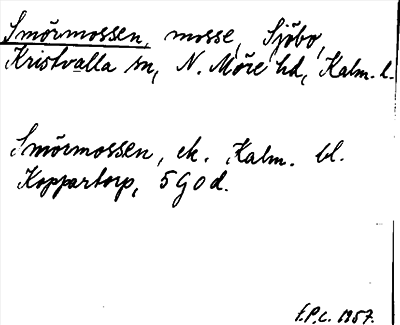 Smörmossen, mosse, Sjöbo,
Kristvalla sn, N. Möre hd, Kalm. l.
Smörmossen, ek. Kalm. bl.
Koppartorp, 5G0d.
F.P.L. 1957.